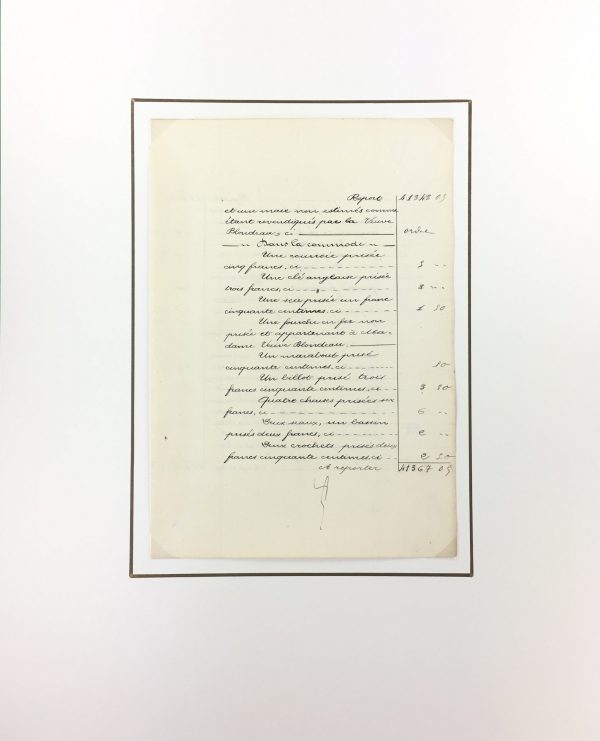 Report 41343 05
et un maie non estimés comme
étant revendiqués par la Veuve
Blondeau, ci ordre
" Dans la commode "
Une courroie prisée
cinq francs, ci 5 "
Une clé anglaise prisée
trois francs, ci 3 "
Une scie prisé un franc
cinquante centimes, ci 1 50
Une fourche en fer non
prisé et appartenant à Ma-
dame Veuve Blondeau.
Un marabout prisé
cinquante centimes, ci 50
Un billot prisé trois
francs cinquante centimes, ci 3 50
Quatre chaises prisées six
francs, ci 6 "
Deux seaux, un bassin
prisés deux francs, ci 2 "
Deux crochets prisés deux
francs cinquante centimes, ci 2 50
A reporter 41367 05